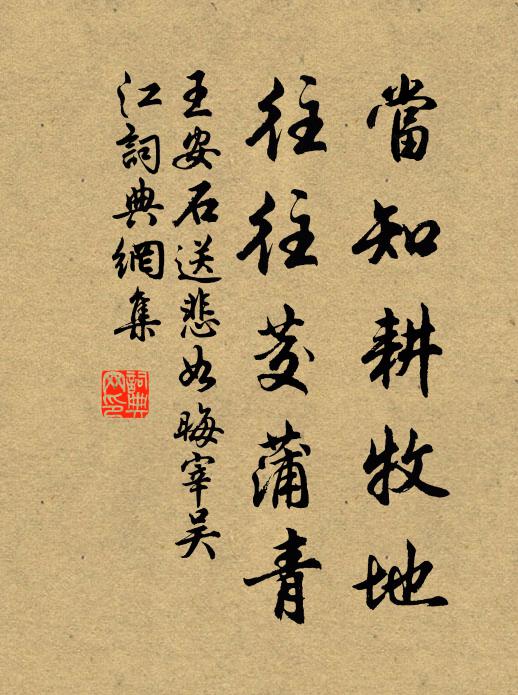 當知耕牧地
往往茭蒲青
王安石送悲如晦宰吳
江詞典網集
詞典
网印